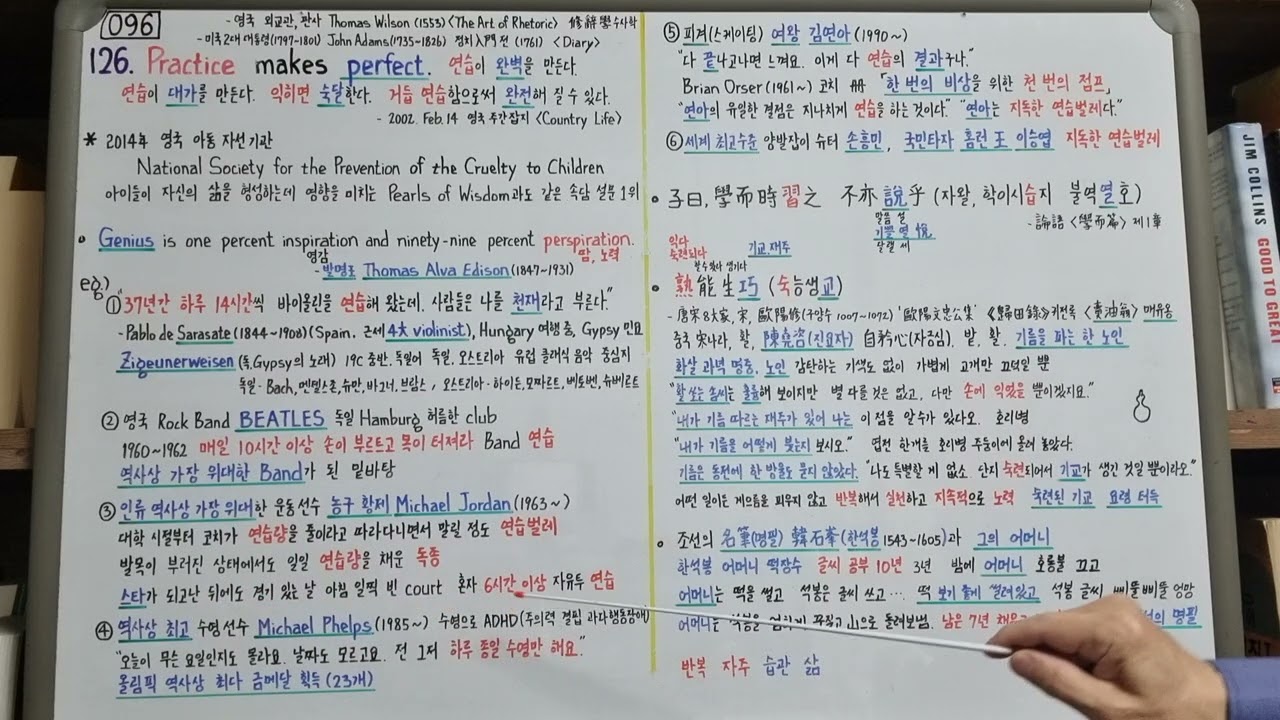 096
- 영국 외교관, 판사 Thomas Wilson (1553) <The Art of Rhetoric> 修辭學 수사학
- 미국 2대 대통령(1797~1801) John Adams(1735~1826) 정치入門 전 (1761) <Diary>
126. Practice makes perfect. 연습이 완벽을 만든다.
연습이 대가를 만든다. 익히면 숙달한다. 거듭 연습함으로써 완전해 질 수 있다.
- 2002. Feb. 14 영국 주간잡지 <Country Life>
* 2014年 영국 아동 자선기관
National Society for the Prevention of the Cruelty to Children
아이들이 자신의 삶을 형성하는데 영향을 미치는 Pearls of Wisdom과도 같은 속담 설문 1위
• Genius is one percent inspiration and ninety-nine percent perspiration.
영감 땀, 노력
- 발명王 Thomas Alva Edison (1847~1931)
eg)
① "37년간 하루 14시간씩 바이올린을 연습해 왔는데, 사람들은 나를 천재라고 부르다."
- Pablo de Sarasate (1844~1908) (Spain. 근세 4大 violinist), Hungary 여행 중, Gypsy 민요
Zigeunerweisen (독, Gypsy의 노래) 19C 중반, 독일어 독일, 오스트리아 유럽 클래식 음악 중심지
독일 - Bach, 멘델스존, 슈만, 바그너, 브람스, 오스트리아 - 하이든, 모짜르트, 베토벤, 슈베르트
② 영국 Rock Band BEATLES 독일 Hamburg 허름한 club
1960~1962 매일 10시간 이상 손이 부르트고 목이 터져라 Band 연습
역사상 가장 위대한 Band가 된 밑바탕
③ 인류 역사상 가장 위대한 운동선수 농구 황제 Michael Jordan (1963~)
대학 시절부터 코치가 연습량을 줄이라고 따라다니면서 말릴 정도 연습벌레
발목이 부러진 상태에서도 일일 연습량을 채운 독종
스타가 되고난 뒤에도 경기 있는 날 아침 일찍 빈 court 혼자 6시간 이상 자유투 연습
④ 역사상 최고 수영선수 Michael Phelps (1985~) 수영으로 ADHD (주의력 결핍 과다행동장애)
"오늘이 무슨 요일인지도 몰라요. 날짜도 모르고요. 전 그저 하루 종일 수영만 해요."
올림픽 역사상 최다 금메달 획득 (23개)
⑤ 피겨(스케이팅) 여왕 김연아 (1990~)
"다 끝나고나면 느껴요. 이게 다 연습의 결과구나."
Brian Orser (1961~) 코치 冊 「한 번의 비상을 위한 천 번의 점프」
"연아의 유일한 결점은 지나치게 연습을 하는 것이다" "연아는 지독한 연습벌레다."
⑥ 세계 최고수준 양발잡이 슈터 손흥민, 국민타자 홈런 王 이승엽 지독한 연습벌레
• 子曰, 學而時習之 不亦說乎 (자왈, 학이시습지 불역열호)
말씀 설
기쁠 열 悅
달랠 세
- 論語 <學而篇> 제1章
익다
숙련되다
할 수 있다 생기다
기교, 재주
• 熟能生巧 (숙능생교)
- 唐宋 8大家, 宋, 歐陽修(구양수 1007~1072) '歐陽文忠公集' <歸田錄> <賣油翁> 매유옹
중국 송나라, 활, 陳堯咨(진요자) 自矜心(자긍심), 밭, 활, 기름을 파는 한 노인
화살 과녁 명중, 노인 감탄하는 기색도 없이 가볍게 고개만 끄덕일 뿐
"활 쏘는 솜씨는 훌륭해 보이지만 별 다를 것은 없고, 다만 손에 익었을 뿐이겠지요."
"내가 기름 따르는 재주가 있어 나는 이 점을 알수가 있다오. 호리병
"내가 기름을 어떻게 붓는지 보시오." 엽전 한개를 호리병 주둥이에 올려 놓았다.
기름은 동전에 한 방울도 묻지 않았다. "나도 특별할 게 없소. 단지 숙련되어서 기교가 생긴 것일 뿐이라오."
어떤 일이든 게으름을 피우지 않고 반복해서 실천하고 지속적으로 노력 숙련된 기교 요령 터득
• 조선의 名筆(명필) 韓石峯(한석봉 1543~1605)과 그의 어머니
한석봉 어머니 떡장수 글씨 공부 10년 3년 밤에 어머니 호롱불 끄고
어머니는 떡을 썰고 석봉은 글씨 쓰고… 떡 보기 좋게 썰려있고 석봉 글씨 삐뚤삐뚤 엉망
어머니는 석봉을 꾸짖고 山으로 돌려보냄. 남은 7년 명필
반복 자주 습관 삶
JIM COLLINS
GOOD TO GREAT